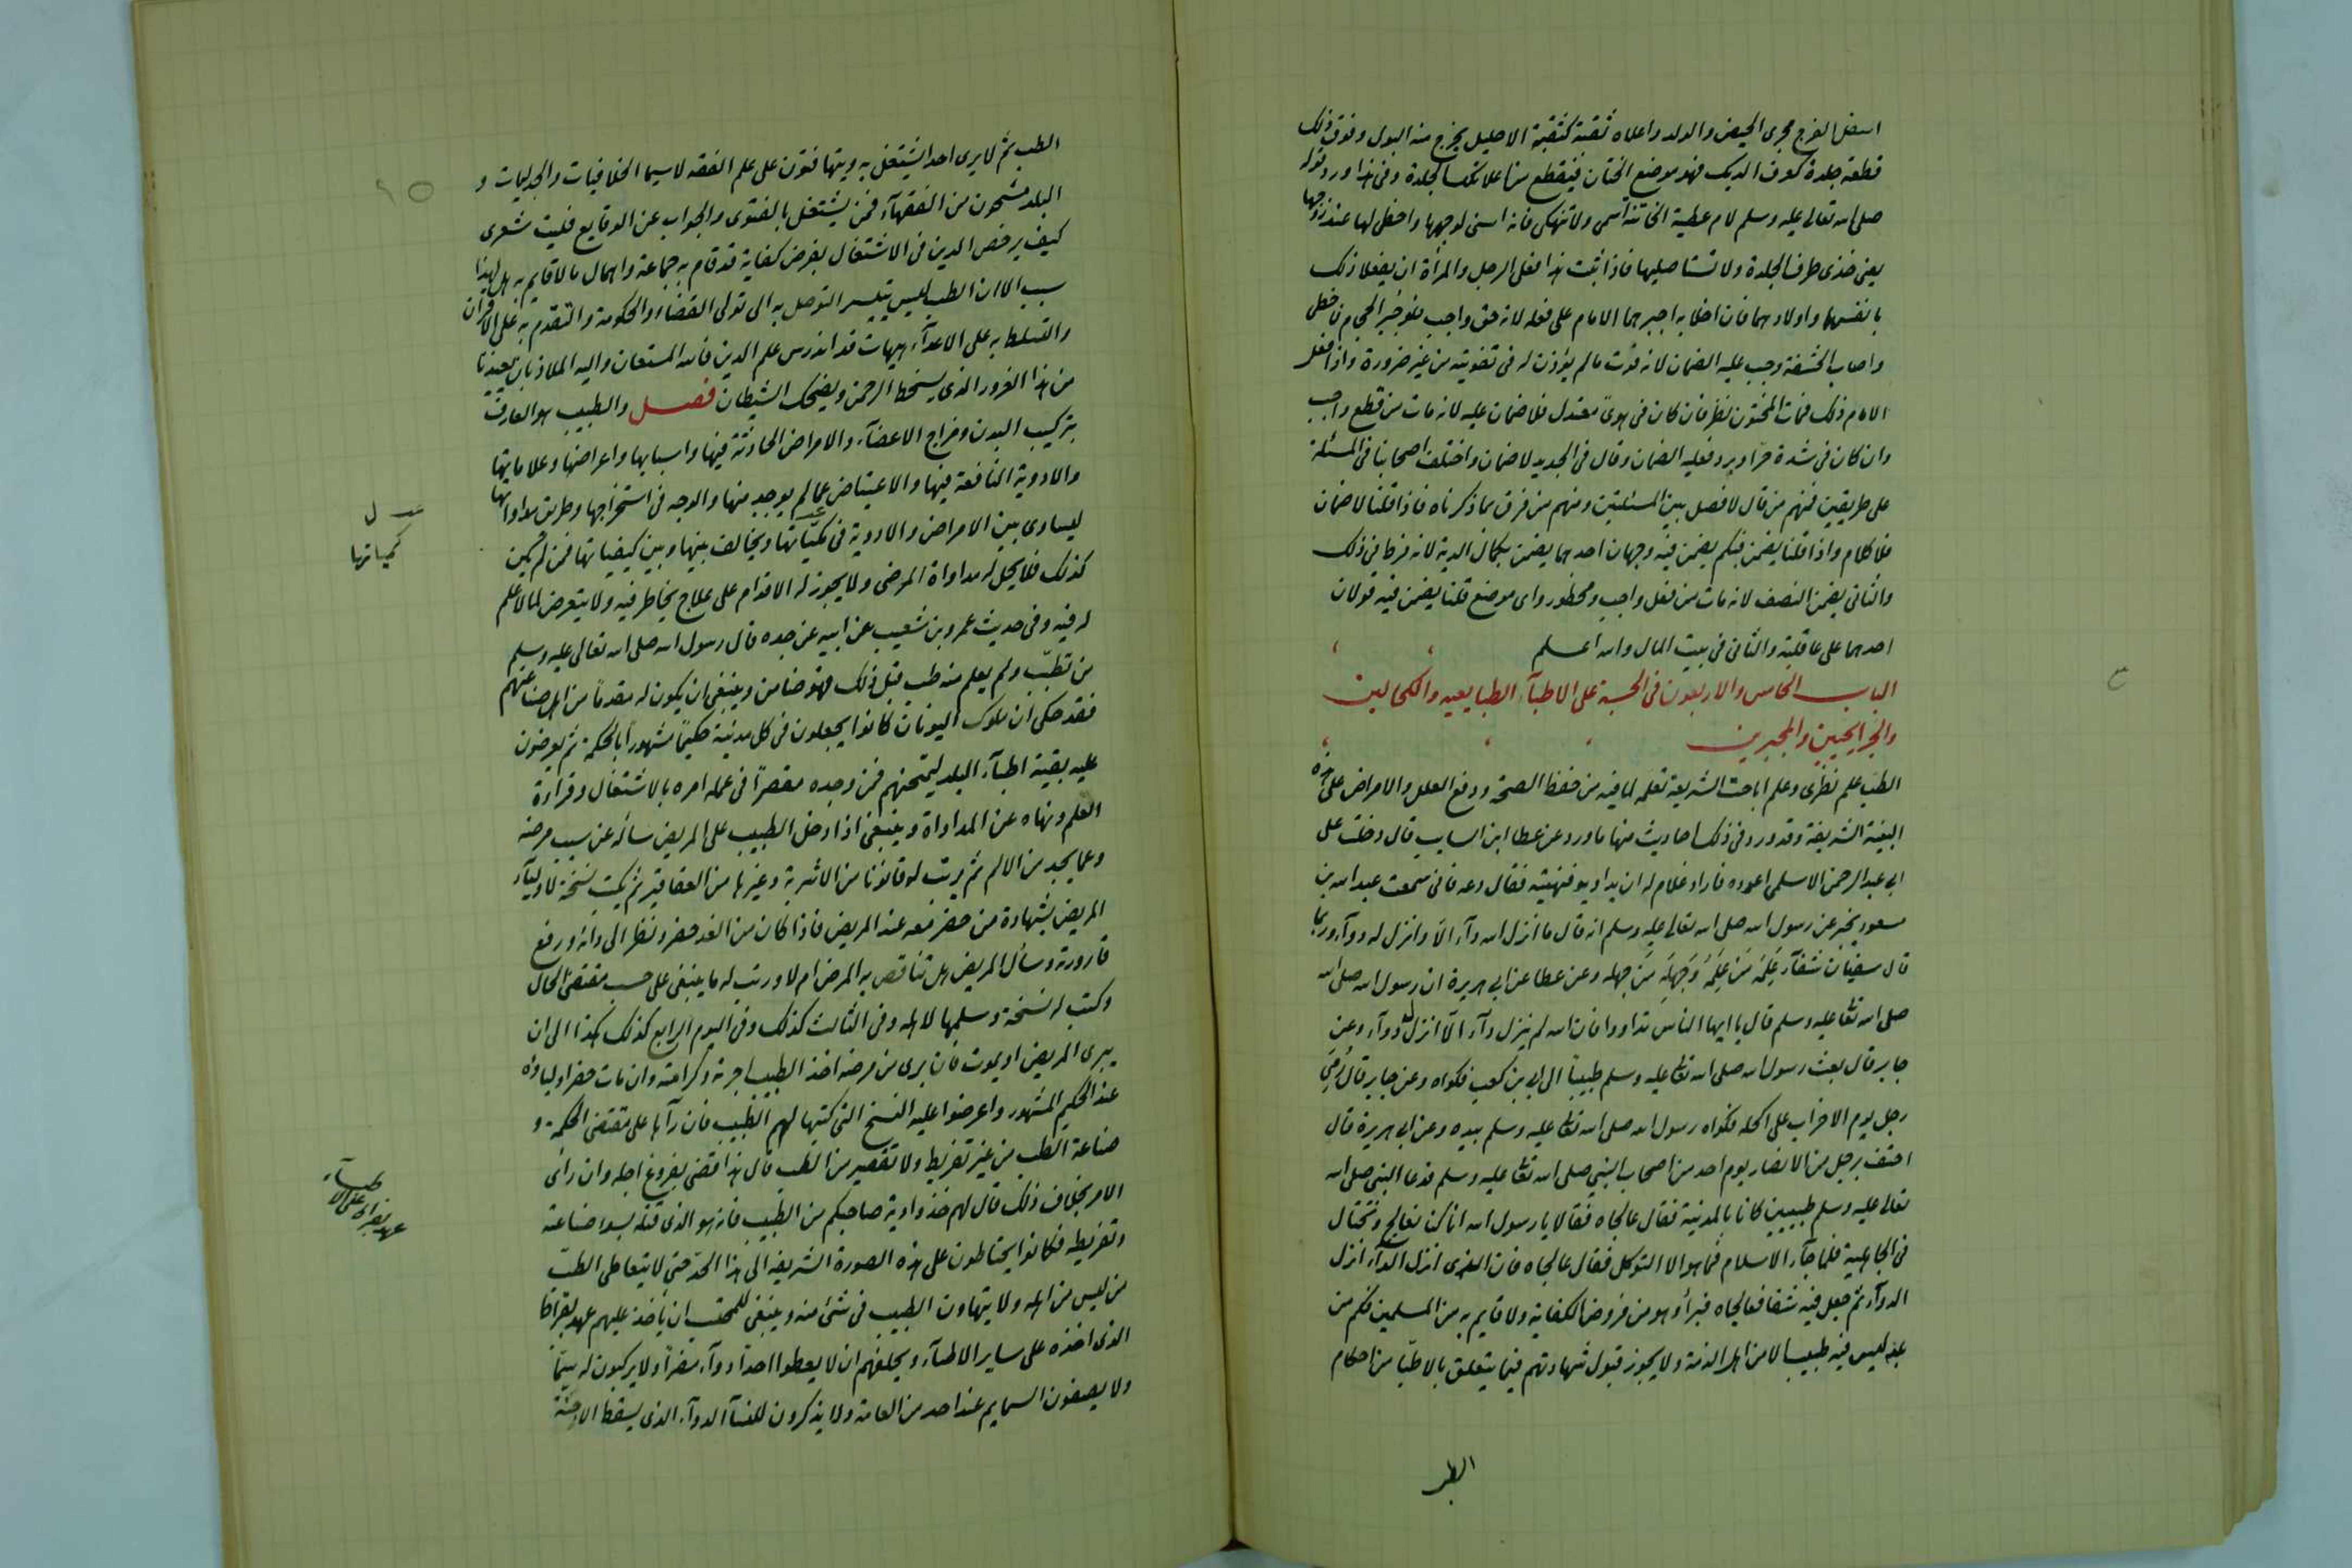 اسفل الفرج مجرى الحيض والولد واعلاه ثقبة كثقبة الاحليل يخرج منه البول وفوق ذلك
قطعة جلدة كعرف الديك فهو موضع الختان فيقطع من اعلا تلك الجلدة وفى هذا ورد قوله
صلى الله تعالى عليه وسلم لام عطية الخاتنة اشمى ولا تنهكى فانه اسنى لوجهها واحظى لها عند زوجها
يعنى خذى طرف الجلدة ولا تستاصليها فاذا ثبت هذا فعلى الرجل والمرأة ان يفعلا ذلك
بانفسهما واولادهما فان اخلا به اجبرهما الامام على فعله لانه حق واجب فلو جبر الحجام فاخطى
واصاب الحشفة وجب عليه الضمان لانه فوت مالم يؤذن له فى تفويته من غير ضرورة واذا فعل
الامام ذلك فمات المختون نظر فان كان فى هوىً معتدل فلا ضمان عليه لانه مات من قطع واجب
وان كان فى شدة حرّ او برد فعليه الضمان وقال فى الجديد لا ضمان واختلف اصحابنا فى المسئلة
على طريقين فمنهم من قال لا فصل بين المسئلتين ومنهم من فرق بما ذكرناه فاذا قلنا لا ضمان
فلا كلام واذا قلنا يضمن فبكم يضمن فيه وجهان احدهما يضمن بكمال الدية لانه فرط فى ذلك
والثانى يضمن النصف لانه مات من فعل واجب ومحظور واى موضع قلنا يضمن فيه قولان
احدهما على عاقلته والثانى فى بيت المال والله اعلم
الباب الخامس والاربعون فى الحسبة على الاطبآء الطبايعيه والكحالين
والجرايحيين والمجبرين
الطب علم نظرى وعلم اباحت الشريعة تعلمه لما فيه من حفظ الصحة ودفع العلل والامراض على هذه
البنية الشريفة وقد ورد فى ذلك احاديث منها ماورد عن عطا ابن السايب قال دخلت على
ابى عبد الرحمن الاسلمى اعوده فاراد غلام له ان يداويه فنهيته فقال دعه فانى سمعت عبد الله بن
مسعود يخبر عن رسول الله صلى الله تعالى عليه وسلم انه قال ما انزل الله دآء الاّ وانزل له دوآء وربما
قال سفيان شفآء عَلِمَه مَن عَلِمَهُ وَجَهِلَه مَن جهله وعن عطا عن ابى هريرة ان رسول الله صلى الله
صلى الله تعا عليه وسلم قال يا ايها الناس تداووا فان الله لم ينزل دآء الاّ انزل له دوآء وعن
جابر قال بعث رسول الله صلى الله تعا عليه وسلم طبيبا الى ابى بن كعب فكواه وعن جابر قال رُمِىَ
رجل يوم الاحزاب على اكحله فكواه رسول الله صلى الله تعا عليه وسلم بيده وعن ابى هريرة قال
احتف برجل من الانصار يوم احد من اصحاب النبى صلى الله تعا عليه وسلم فدعا النبى صلى الله
تعالى عليه وسلم طبيبين كانا بالمدينة فقال عالجاه فقالا يا رسول الله انا كنا نعالج ونحتال
فى الجاهلية فلما جآء الاسلام فما هو الا التوكل فقال عالجاه فان الذى انزل الدآء انزل
الدوآء ثم جعل فيه شفا فعالجاه فبرأ وهو من فروض الكفاية ولا قايم به من المسلمين فكم من
بلد ليس فيه طبيب الا من اهل الذمة ولا يجوز قبول شهادتهم فيما يتعلق بالاطبّا من احكام
الطب
الطب ثم لا يرى احدا يشتغل به ويتهافتون على علم الفقه لاسيما الخلافيات والجدليات و
البلد مشحون من الفقهآء فمن يشتغل بالفتوى والجواب عن الوقايع فليت شعرى
كيف يرخص الدين فى الاشتغال بفرض كفاية قد قام به جماعة واهمال مالا قايم به هل لهذا
سبب الا ان الطب ليس يتيسر التوصل به الى تولى القضاء والحكومة والتقدم به على الاقران
والتسلط به على الاعدآء هيهات قد اندرس علم الدين فالله المستعان واليه الملاذ بان يعيذنا
من هذا الغرور الذى يسخط الرحمن ويضحك الشيطان فصل والطبيب هو العارف
بتركيب البدن ومزاج الاعضآء والامراض الحادثة فيها واسبابها واعراضها وعلاماتها
والادوية النافعة فيها والاعتياض عمالم يوجد منها والوجه فى استخراجها وطريق مداواتها
ليساوى بين الامراض والادوية فى كمياتها ويخالف بينها وبين كيفياتها فمن لم يكن
كذلك فلا يحل له مداواة المرضى ولا يجوز له الاقدام على علاج يخاطر فيه ولا يتعرض لما لا علم
له فيه وفى حديث عمرو بن شعيب عن ابيه عن جده قال رسول الله صلى الله تعالى عليه وسلم
من تطبّب ولم يعلم منه طب قبل ذلك فهو ضامن وينبغى ان يكون له مقدماً من اهل صناعتهم
فقد حكى ان ملوك اليونان كانوا يجعلون فى كل مدينة حكيماً مشهوراً بالحكمة ثم يعرضون
عليه بقية اطبآء البلد ليمتحنهم فمن وجده مقصراً فى عمله امره بالاشتغال وقراءة
العلم ونهاه عن المداواة وينبغى اذا دخل الطبيب على المريض سأله عن سبب مرضه
وعما يجد من الالم ثم يرتب له قانونا من الاشربة وغيرها من العقاقير ثم يكتب نسخة لاوليآء
المريض بشهادة من حضر معه عند المريض فاذا كان من الغد حضر ونظر الى دائه ورفع
قارورته وسأل المريض هل تناقص به المرض ام لا ورتب له ما ينبغى على حسب مقتضى الحال
وكتب له نسخة وسلمها لاهله وفى الثالث كذلك وفى اليوم الرابع كذلك هكذا الى ان
يبرى المريض او يموت فان برى من مرضه اخذ الطبيب اجرته وكرامته وان مات حضر اولياؤه
عند الحكيم المشهور واعرضوا عليه النسخ التى كتبها لهم الطبيب فان رآها على مقتضى الحكمة و
صناعة الطب من غير تفريط ولا تقصير من الطب قال هذا قضى بفروغ اجله وان رأى
الامر بخلاف ذلك قال لهم خذوا دية صاحبكم من الطبيب فانه هو الذى قتله بسوء صناعته
وتفريطه فكانوا يحتاطون على هذه الصورة الشريفة الى هذا الحد حتى لا يتعاطى الطب
من ليس من اهله ولا يتهاون الطبيب فى شئ منه وينبغى للمحتسب ان يأخذ عليهم عهد بقراط
الذى اخذه على ساير الاطبآء ويحلفهم ان لا يعطوا احداً دوآء مضراً ولا يركبون له سمّا
ولا يصفون السمايم عند احد من العامة ولا يذكرون للنسآء الدوآء الذى يسقط الاجنة
كمياتها
عهد بقراط على الاطبآء